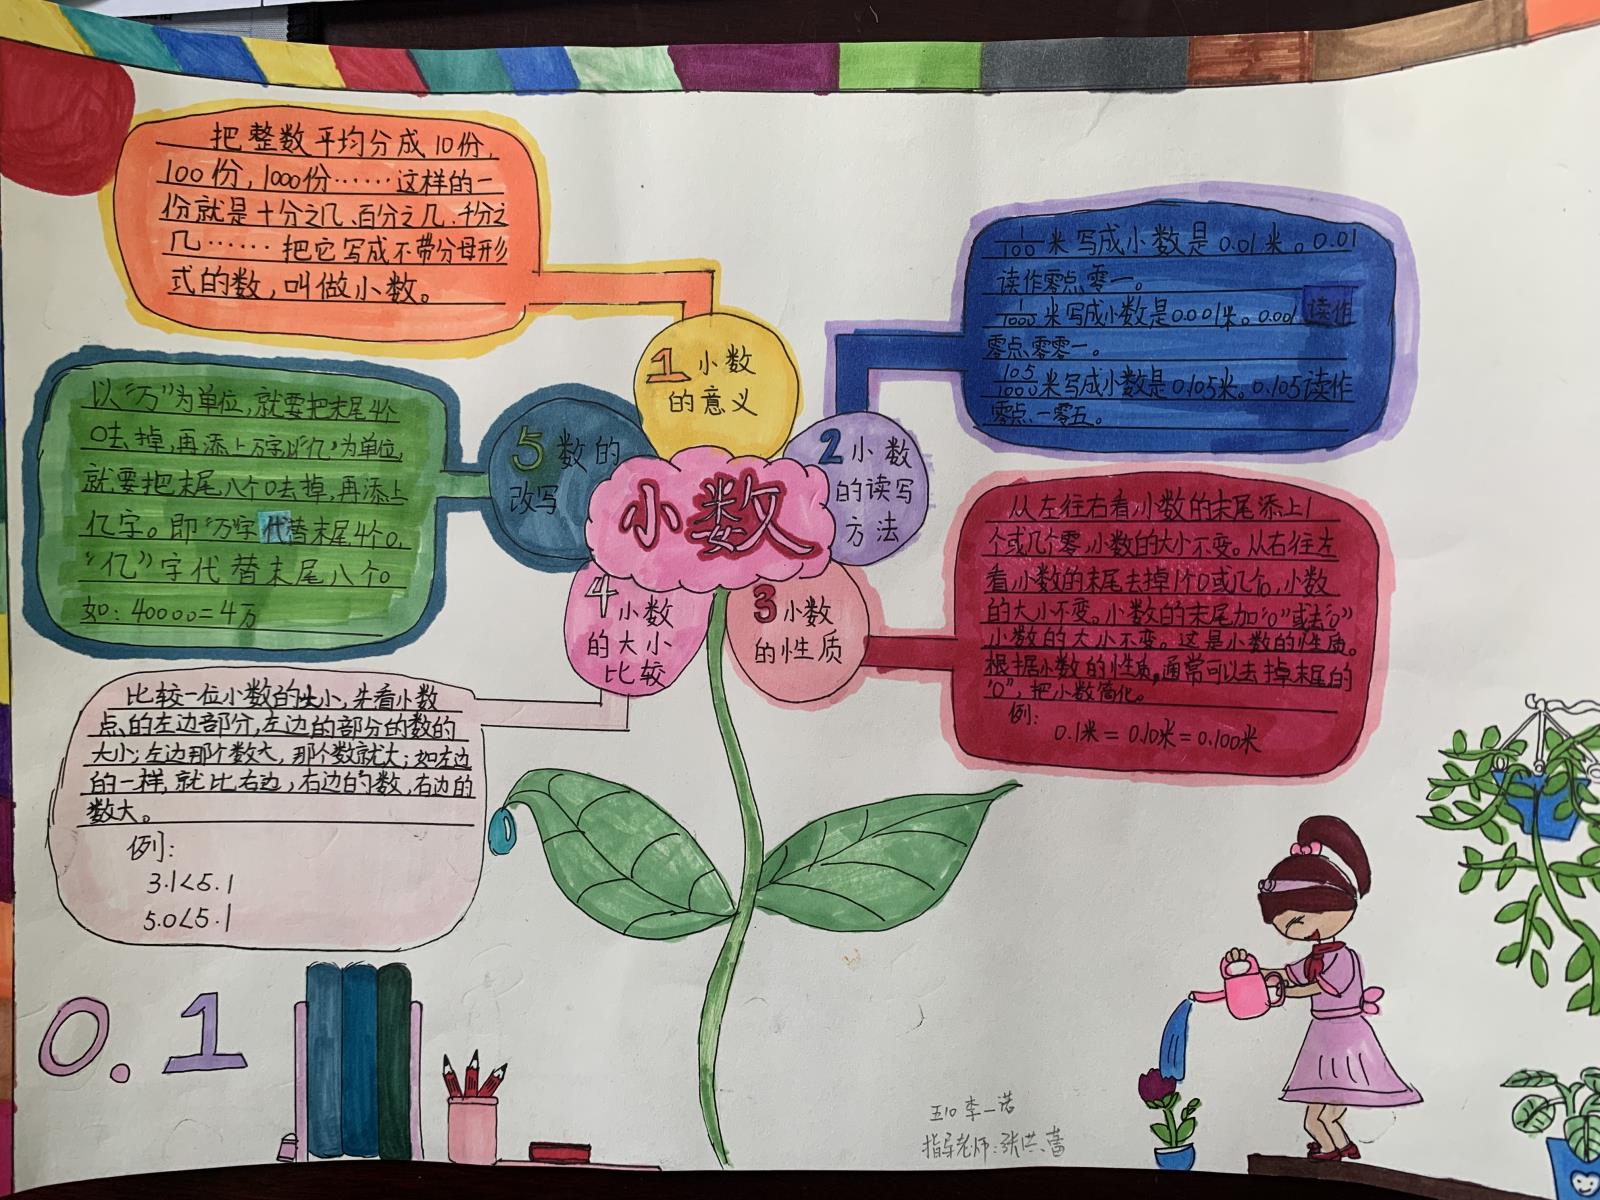 小数
1小数
的意义
把整数平均分成10份,
100份,1000份……这样的一
份就是十分之几、百分之几、千分之
几……把它写成不带分母形
式的数,叫做小数。
2小数
的读写
方法
1/100米写成小数是0.01米。0.01
读作零点零一。
1/1000米写成小数是0.001米。0.001读作
零点零零一。
105/1000米写成小数是0.105米。0.105读作
零点一零五。
3小数
的性质
从左往右看,小数的末尾添上1
个或几个零,小数的大小不变。从右往左
看,小数的末尾去掉1个0或几个0,小数
的大小不变。小数的末尾加“0”或去“0”
小数的大小不变。这是小数的性质。
根据小数的性质,通常可以去掉末尾的
“0”,把小数简化。
例:
0.1米=0.10米=0.100米
4小数
的大小
比较
比较一位小数的大小,先看小数
点的左边部分,左边的部分的数的
大小;左边那个数大,那个数就大;如左边
的一样,就比右边,右边的数,右边的
数大。
例:
3.1<5.1
5.0<5.1
5数的
改写
以“万”为单位,就要把末尾4个
0去掉,再添上万字以“亿”为单位,
就要把末尾八个0去掉,再添上
亿字。即“万”字代替末尾4个0,
“亿”字代替末尾八个0
如:40000=4万
0.1
五10李一诺
指导老师:张洪蕾